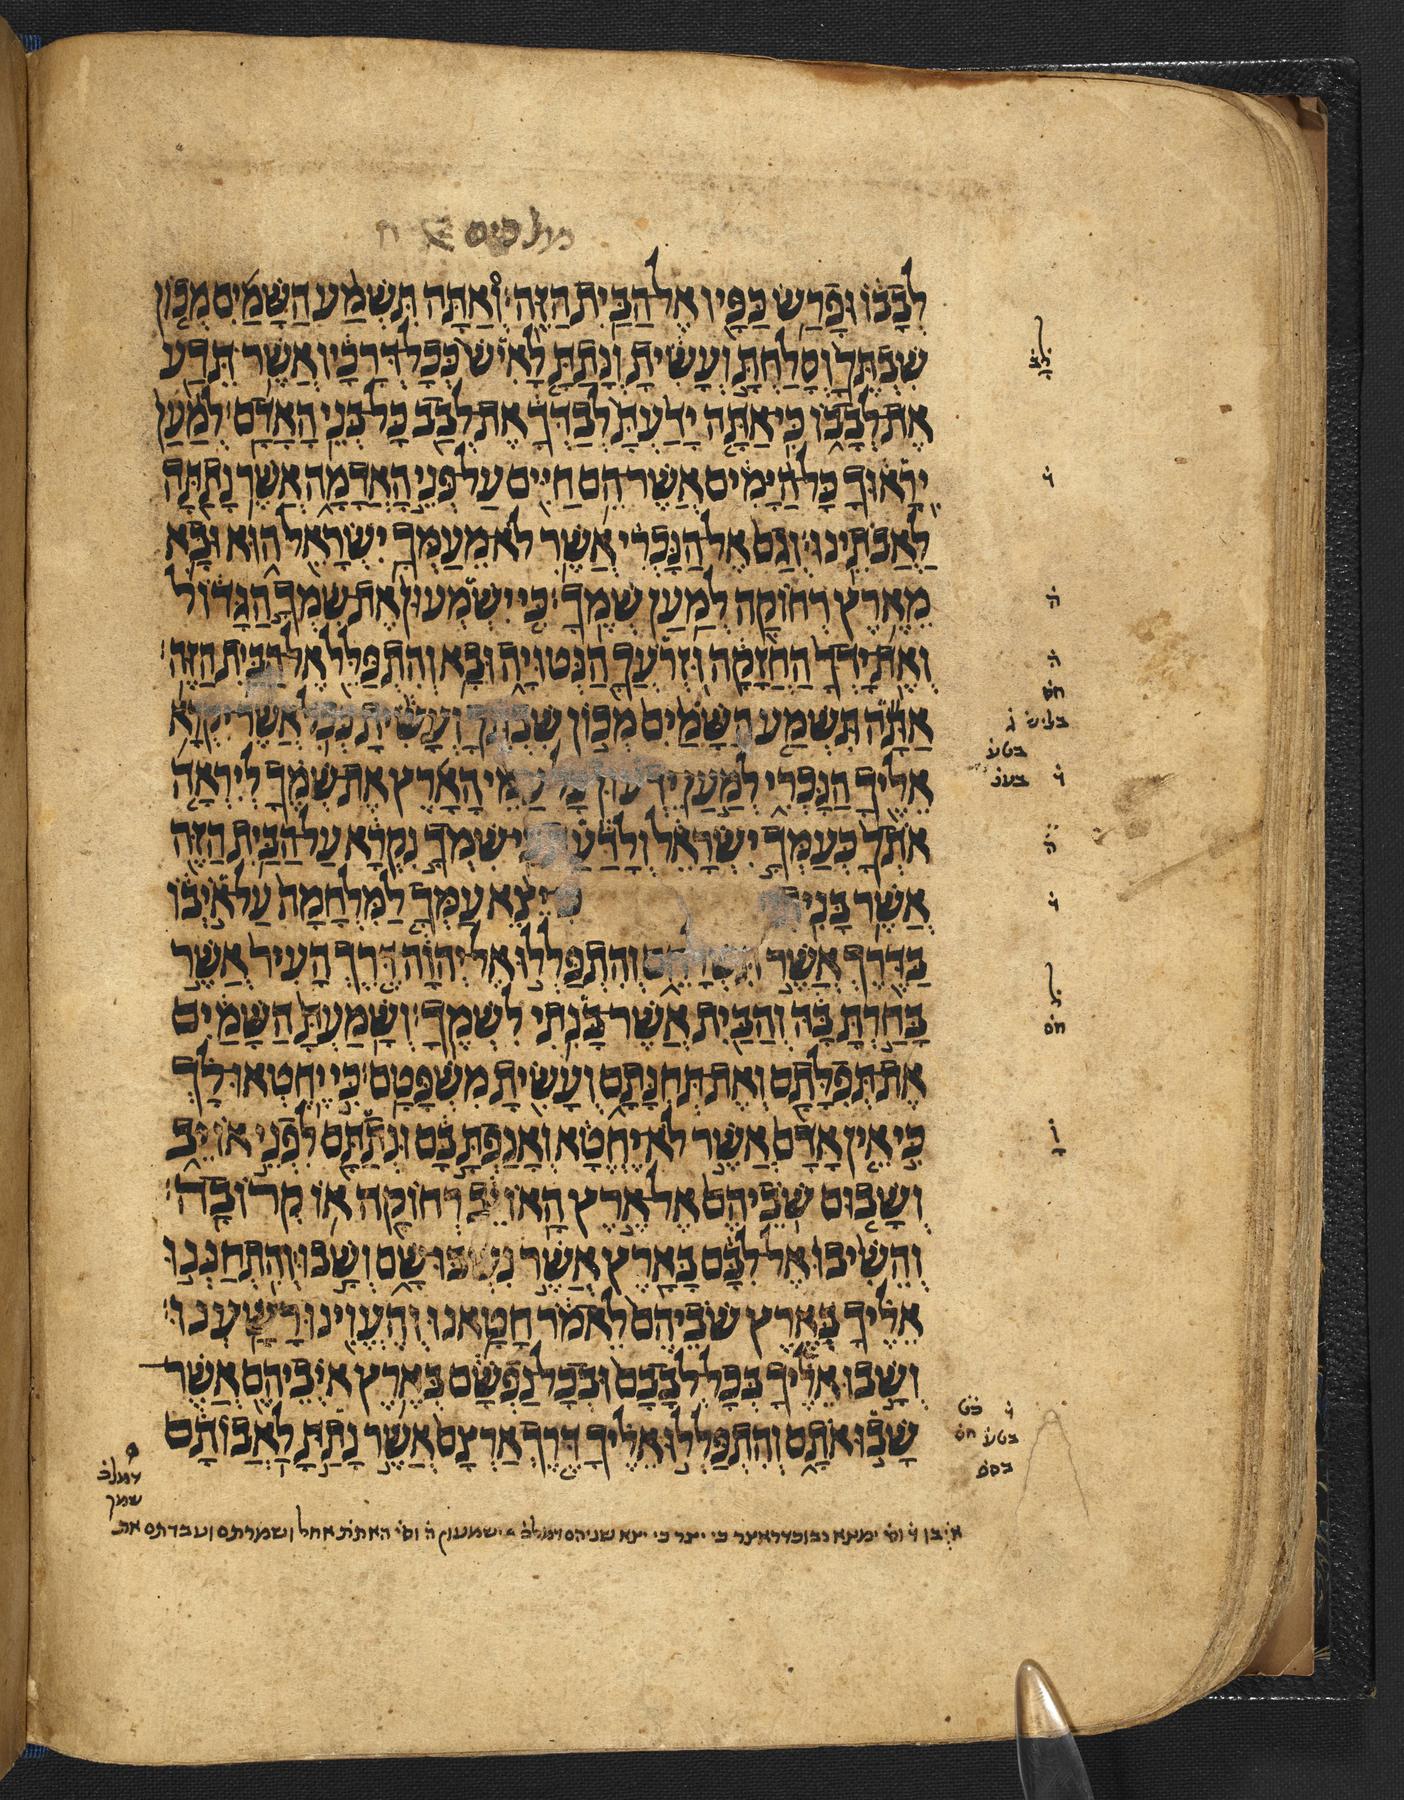 מלכים א ח
לְבָבוֹ וּפָרַשׂ כַּפָּיו אֶל הַבַּיִת הַזֶּה׃ וְאַתָּה תִּשְׁמַע הַשָּׁמַיִם מְכוֹן
שִׁבְתֶּךָ וְסָלַחְתָּ וְעָשִׂיתָ וְנָתַתָּ לָאִישׁ כְּכָל דְּרָכָיו אֲשֶׁר תֵּדַע
אֶת לְבָבוֹ כִּי אַתָּה יָדַעְתָּ לְבַדְּךָ אֶת לְבַב כָּל בְּנֵי הָאָדָם׃ לְמַעַן
יִרָאוּךָ כָּל הַיָּמִים אֲשֶׁר הֵם חַיִּים עַל פְּנֵי הָאֲדָמָה אֲשֶׁר נָתַתָּה
לַאֲבֹתֵינוּ׃ וְגַם אֶל הַנָּכְרִי אֲשֶׁר לֹא מֵעַמְּךָ יִשְׂרָאֵל הוּא וּבָא
מֵאֶרֶץ רְחוֹקָה לְמַעַן שְׁמֶךָ׃ כִּי יִשְׁמְעוּן אֶת שִׁמְךָ הַגָּדוֹל
וְאֶת יָדְךָ הַחֲזָקָה וּזְרֹעֲךָ הַנְּטוּיָה וּבָא וְהִתְפַּלֵּל אֶל הַבַּיִת הַזֶּה׃
אַתָּה תִּשְׁמַע הַשָּׁמַיִם מְכוֹן שִׁבְתֶּךָ וְעָשִׂיתָ כְּכֹל אֲשֶׁר יִקְרָא
אֵלֶיךָ הַנָּכְרִי לְמַעַן יֵדְעוּן כָּל עַמֵּי הָאָרֶץ אֶת שְׁמֶךָ לְיִרְאָה
אֹתְךָ כְּעַמְּךָ יִשְׂרָאֵל וְלָדַעַת כִּי שִׁמְךָ נִקְרָא עַל הַבַּיִת הַזֶּה
אֲשֶׁר בָּנִיתִי כִּי יֵצֵא עַמְּךָ לַמִּלְחָמָה עַל אֹיְבוֹ
בַּדֶּרֶךְ אֲשֶׁר תִּשְׁלָחֵם וְהִתְפַּלְלוּ אֶל יְהוָה דֶּרֶךְ הָעִיר אֲשֶׁר
בָּחַרְתָּ בָּהּ וְהַבַּיִת אֲשֶׁר בָּנִתִי לִשְׁמֶךָ׃ וְשָׁמַעְתָּ הַשָּׁמַיִם
אֶת תְּפִלָּתָם וְאֶת תְּחִנָּתָם וְעָשִׂיתָ מִשְׁפָּטָם׃ כִּי יֶחֶטְאוּ לָךְ
כִּי אֵין אָדָם אֲשֶׁר לֹא יֶחֱטָא וְאָנַפְתָּ בָם וּנְתַתָּם לִפְנֵי אוֹיֵב
וְשָׁבוּם שֹׁבֵיהֶם אֶל אֶרֶץ הָאוֹיֵב רְחוֹקָה אוֹ קְרוֹבָה׃
וְהֵשִׁיבוּ אֶל לִבָּם בָּאָרֶץ אֲשֶׁר נִשְׁבּוּ שָׁם וְשָׁבוּ וְהִתְחַנְּנוּ
אֵלֶיךָ בְּאֶרֶץ שֹׁבֵיהֶם לֵאמֹר חָטָאנוּ וְהֶעֱוִינוּ רָשָׁעְנוּ׃
וְשָׁבוּ אֵלֶיךָ בְּכָל לְבָבָם וּבְכָל נַפְשָׁם בְּאֶרֶץ אֹיְבֵיהֶם אֲשֶׁר
שָׁבוּ אֹתָם וְהִתְפַּלְלוּ אֵלֶיךָ דֶּרֶךְ אַרְצָם אֲשֶׁר נָתַתָּ לַאֲבוֹתָם
ה֗
ה֗
חס֗
בליש֗ ג֗
בטע֗
חס֗
בטע֗ חס֗
בסס֗
שמך
נבוכדראצר כי יצר כי יצא שניהם ישמעון ה֗ וס֗י האתת אחל ושמרתם ועבדתם את